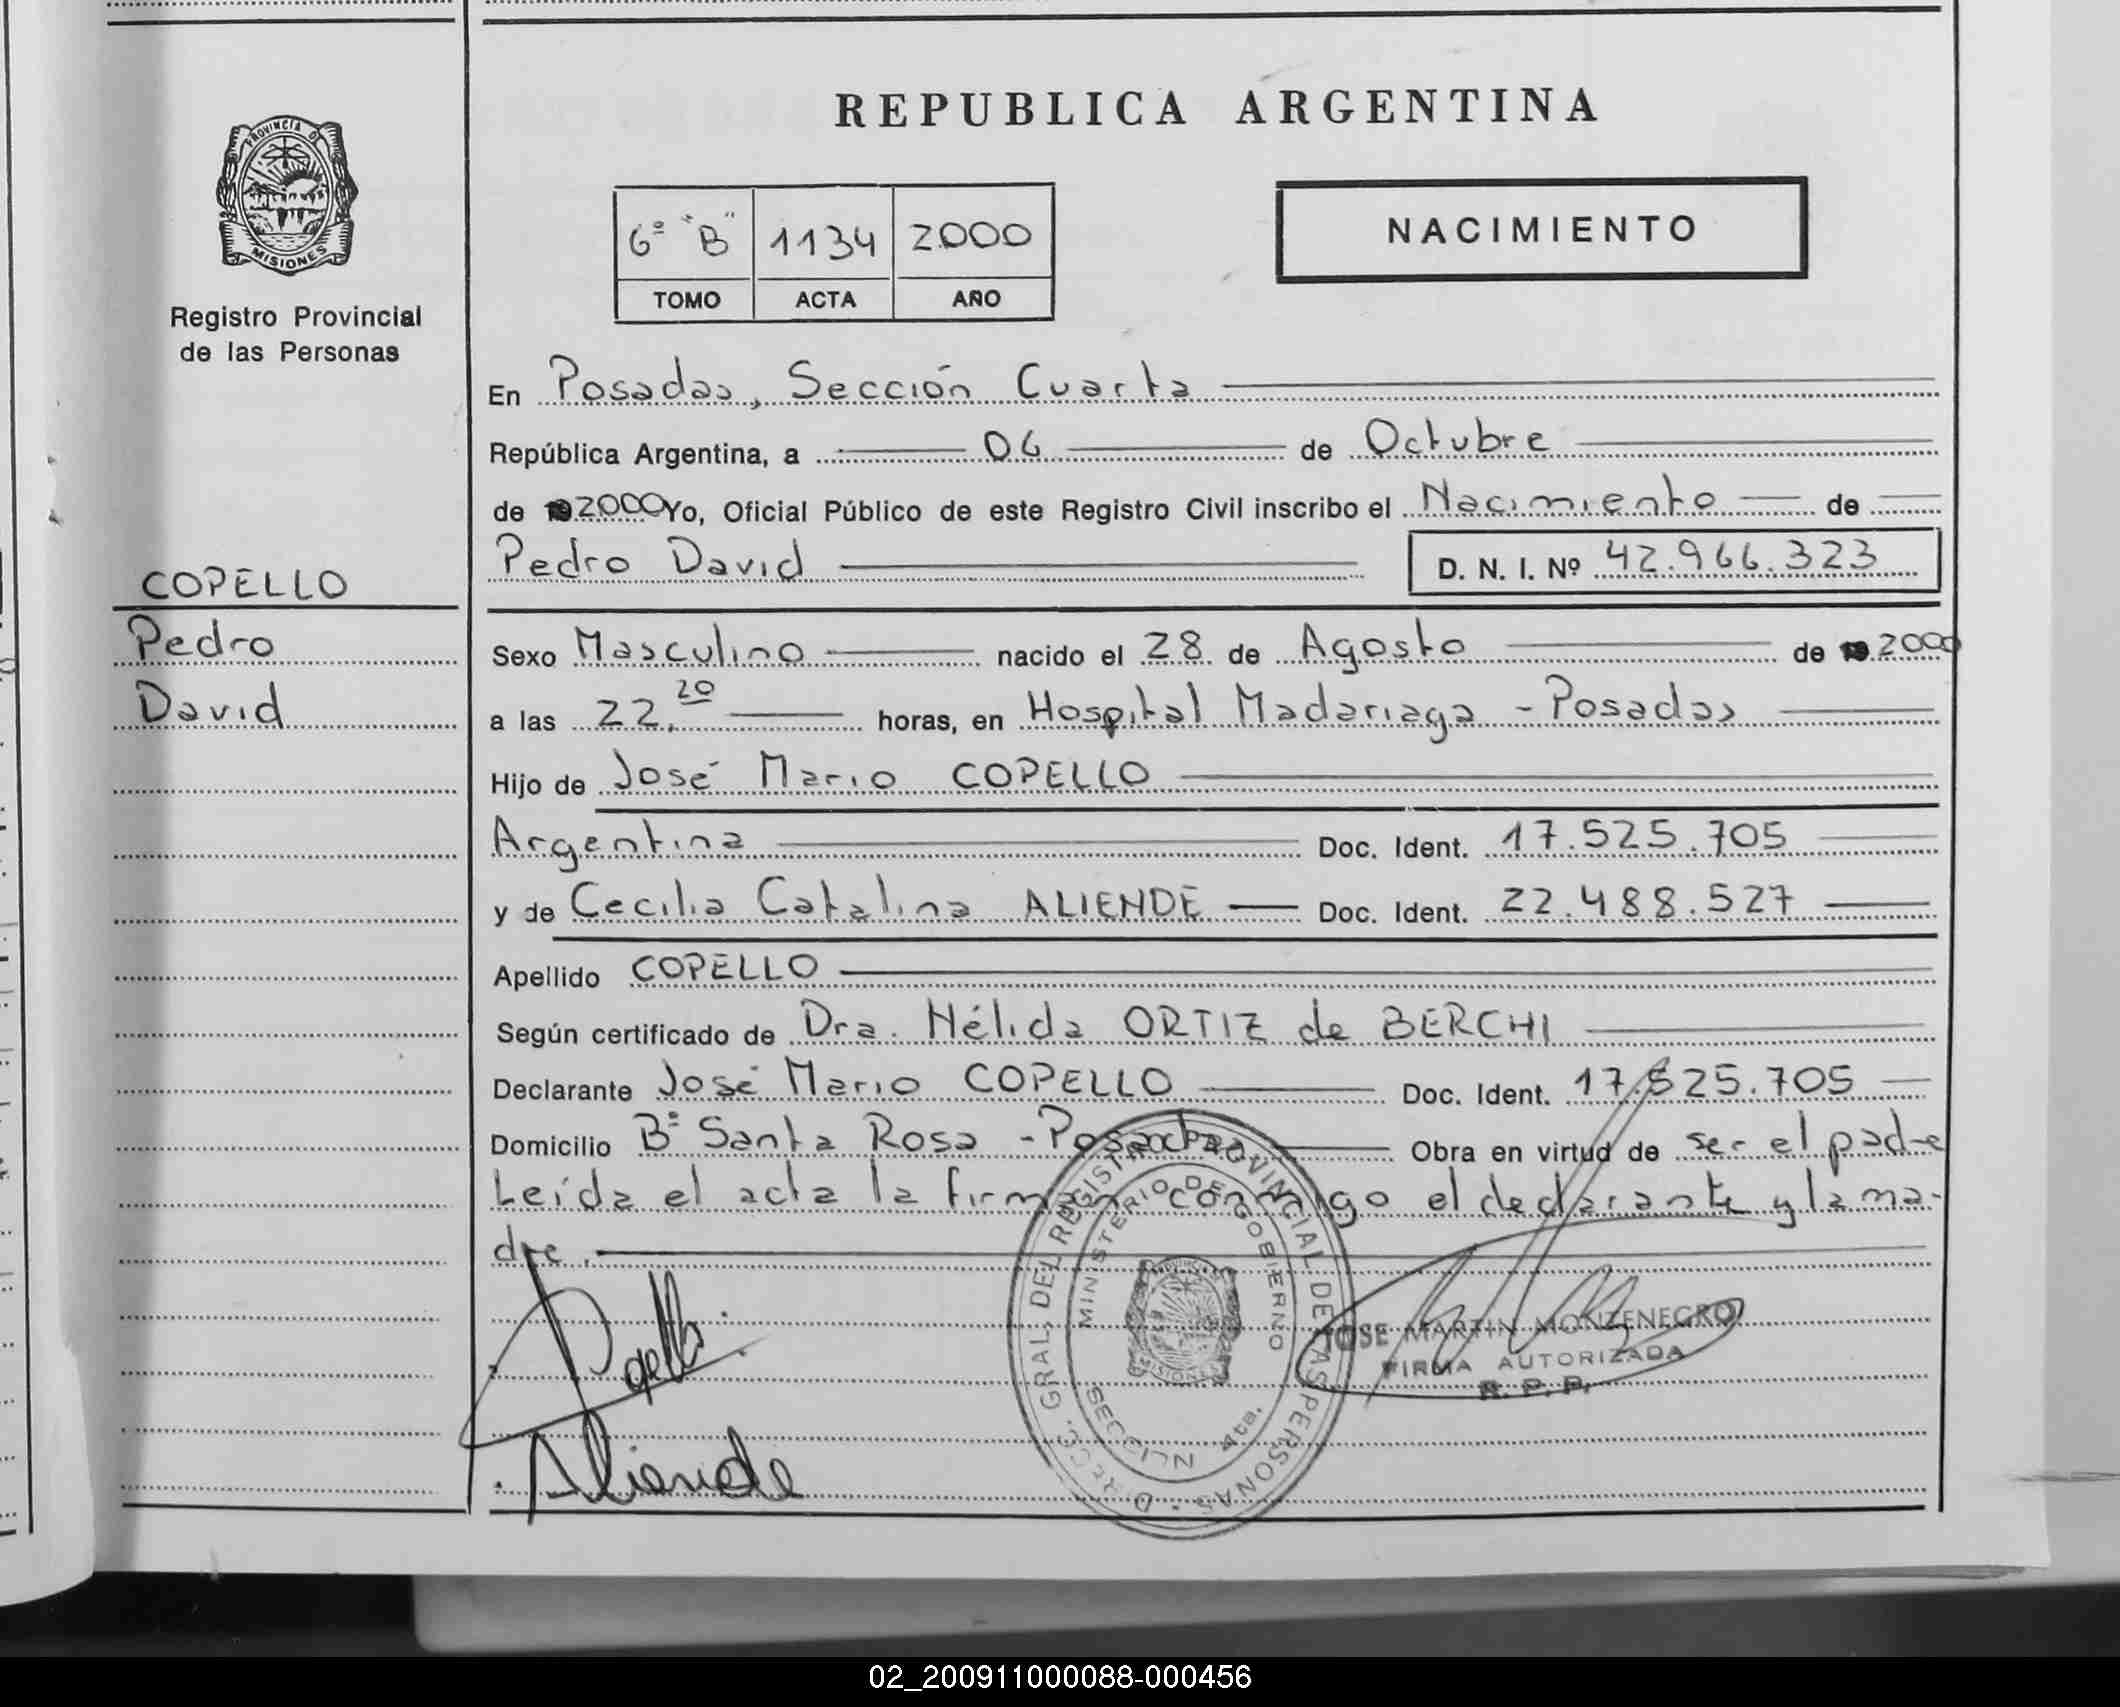 REPUBLICA ARGENTINA
PROVINCIA D
MISIONES
Registro Provincial
de las Personas
6º "B" 1134 2000
TOMO ACTA AÑO
NACIMIENTO
En Posadas, Sección Cuarta
República Argentina, a 06 de Octubre
de 2000 Yo, Oficial Público de este Registro Civil inscribo el Nacimiento de
Pedro David D. N. I. Nº 42.966.323
COPELLO
Pedro
David
Sexo Masculino nacido el 28 de Agosto de 2000
a las 22.20 horas, en Hospital Madariaga - Posadas
Hijo de José Mario COPELLO
Argentina Doc. Ident. 17.525.705
y de Cecilia Catalina ALIENDE Doc. Ident. 22.488.527
Apellido COPELLO
Según certificado de Dra. Nélida ORTIZ de BERCHI
Declarante José Mario COPELLO Doc. Ident. 17.525.705
Domicilio Bº Santa Rosa - Posadas Obra en virtud de ser el padre
Leída el acta la firman conmigo el declarante y la ma-
dre.
DIREC. GRAL. DEL REGISTRO PROVINCIAL DE LAS PERSONAS
MINISTERIO DE GOBIERNO
SECCION 4ta.
JOSE MARTIN MONZENEGRO
FIRMA AUTORIZADA
R. P. P.
Aliende
02_200911000088-000456